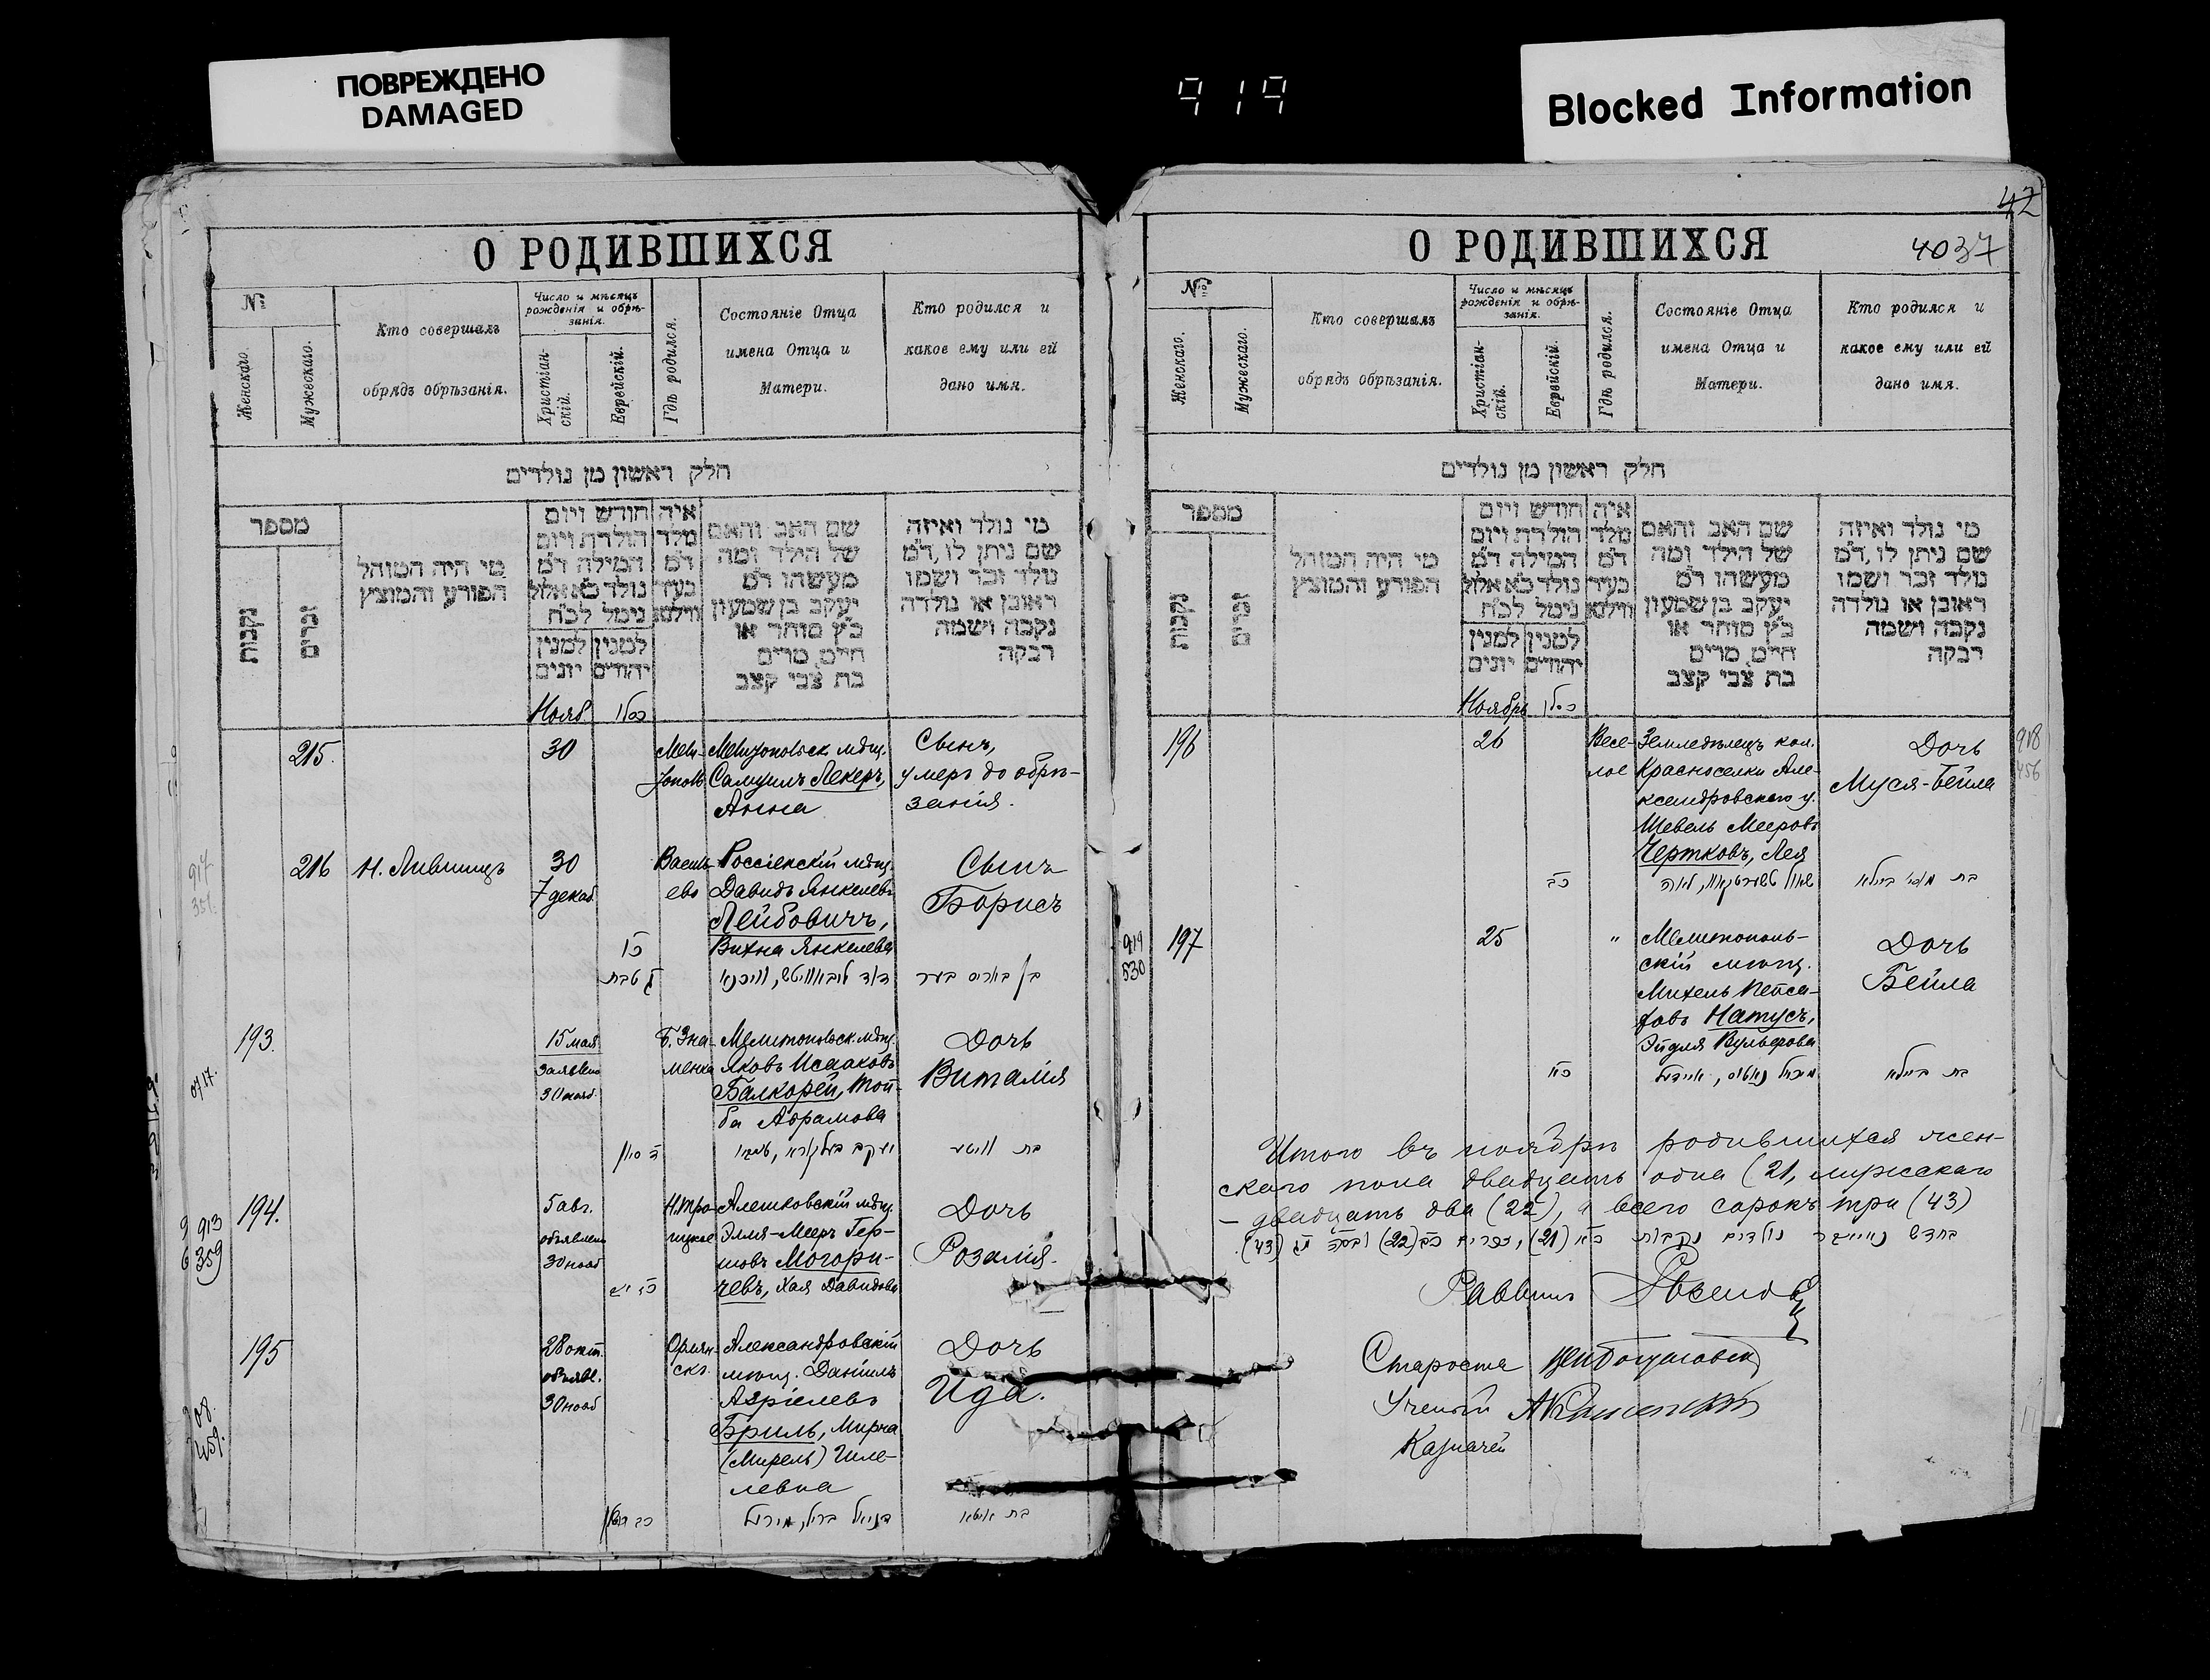 ПОВРЕЖДЕНО
DAMAGED
919
Blocked Information
42
О РОДИВШИХСЯ
№
Женскаго.
Мужескаго.
Кто совершалъ
обрядъ обрѣзанія.
Число и мѣсяцъ
рожденія и обрѣ-
занія.
Христіан-
скій.
Еврейскій.
Гдѣ родился.
Состояніе Отца
имена Отца и
Матери.
Кто родился и
какое ему или ей
дано имя.
חלק ראשון מן נולדים
מספר
נקבות
זכרים
מי היה המוהל
הפורע והמוצץ
חודש ויום
הולדת ויום
המילה ד״מ
נולד כ״א אלול
נימל לכ״ח
למנין
יונים
למנין
יהודים
איה
מלד
ד״מ
בעיר
ווילנא
שם האב והאם
של הילד ומה
מעשהו ד״מ
יעקב בן שמעון
כ״ץ סוחר או
חי״ט מרים
בת צבי קצב
מי נולד ואיזה
שם ניתן לו, ד״מ
נולד זכר ושמו
ראובן או נולדה
נקבה ושמה
רבקה
Нояб.
כסלו
215.
30
Мели-
Мелитопольск. мѣщ.
Самуилъ Лекеръ,
Анна
Сынъ,
умеръ до обрѣ-
занія.
917
351.
216
Н. Лившицъ
30
7 декаб.
Василь-
ево
Россіенскій мѣщ.
Давидъ Янкелевъ
Лейбовичъ,
Вихна Янкелева
Сынъ
Борисъ
כו
ג טבת
דוד לייבאוויטש, וויכנא
בן בארוס בער
193.
15 мая
заявлено
30 нояб.
Б. Зна-
менка
Мелитопольск. мѣщ.
Яковъ Исааковъ
Балкорей, Той-
ба Абрамова
Дочь
Виталія
ה סיון
יעקב באלקוריי,
בת
913
359
194.
5 авг.
объявлено
30 нояб
Н. Тро-
ицкое
Алешковскій мѣщ.
Элія-Мееръ Гер-
шовъ Могори-
чевъ, Хая Давидова
Дочь
Розалія.
195
28 окт.
объявл.
30 нояб
Орлян-
скъ.
Александровскій
мѣщ. Даніилъ
Азріелевъ
Бриль, Мирка
(Мирель) Гиле-
левна
Дочь
Ида.
כב חשון
דניאל בריל, מירעל
בת אידא
О РОДИВШИХСЯ
4037
№
Женскаго.
Мужескаго.
Кто совершалъ
обрядъ обрѣзанія.
Число и мѣсяцъ
рожденія и обрѣ-
занія.
Христіан-
скій.
Еврейскій.
Гдѣ родился.
Состояніе Отца
имена Отца и
Матери.
Кто родился и
какое ему или ей
дано имя.
חלק ראשון מן נולדים
מספר
נקבות
זכרים
מי היה המוהל
הפורע והמוצץ
חודש ויום
הולדת ויום
המילה ד״מ
נולד כ״א אלול
נימל לכ״ח
למנין
יונים
למנין
יהודים
איה
מלד
ד״מ
בעיר
ווילנא
שם האב והאם
של הילד ומה
מעשהו ד״מ
יעקב בן שמעון
כ״ץ סוחר או
חי״ט מרים
בת צבי קצב
מי נולד ואיזה
שם ניתן לו, ד״מ
נולד זכר ושמו
ראובן או נולדה
נקבה ושמה
רבקה
Ноябрь
כסלו
196
26
Весе-
лое
Земледѣлецъ кол.
Красноселки Але-
ксандровскаго у.
Шевель Мееровъ
Чертковъ, Лея
Дочь
Муся-Бейла
918
456
כב
שאול טשערטקאוו, לאה
בת מוסי ביילא
919
530
197
25
"
Мелитополь-
скій мѣщ.
Михель Пейса-
ховъ Натусъ,
Эйдля Вульфова
Дочь
Бейла
כא
מיכאל נאטוס, איידעל
בת ביילא
Итого въ ноябрѣ родившихся жен-
скаго пола двадцать одна (21, мужскаго
— двадцать два (22), а всего сорокъ три (43)
בחדש נאיאבר נולדים נקבות כא (21), זכרים כב (22) ובסה מג (43).
Раввинъ
Староста
Ученый
Казначей